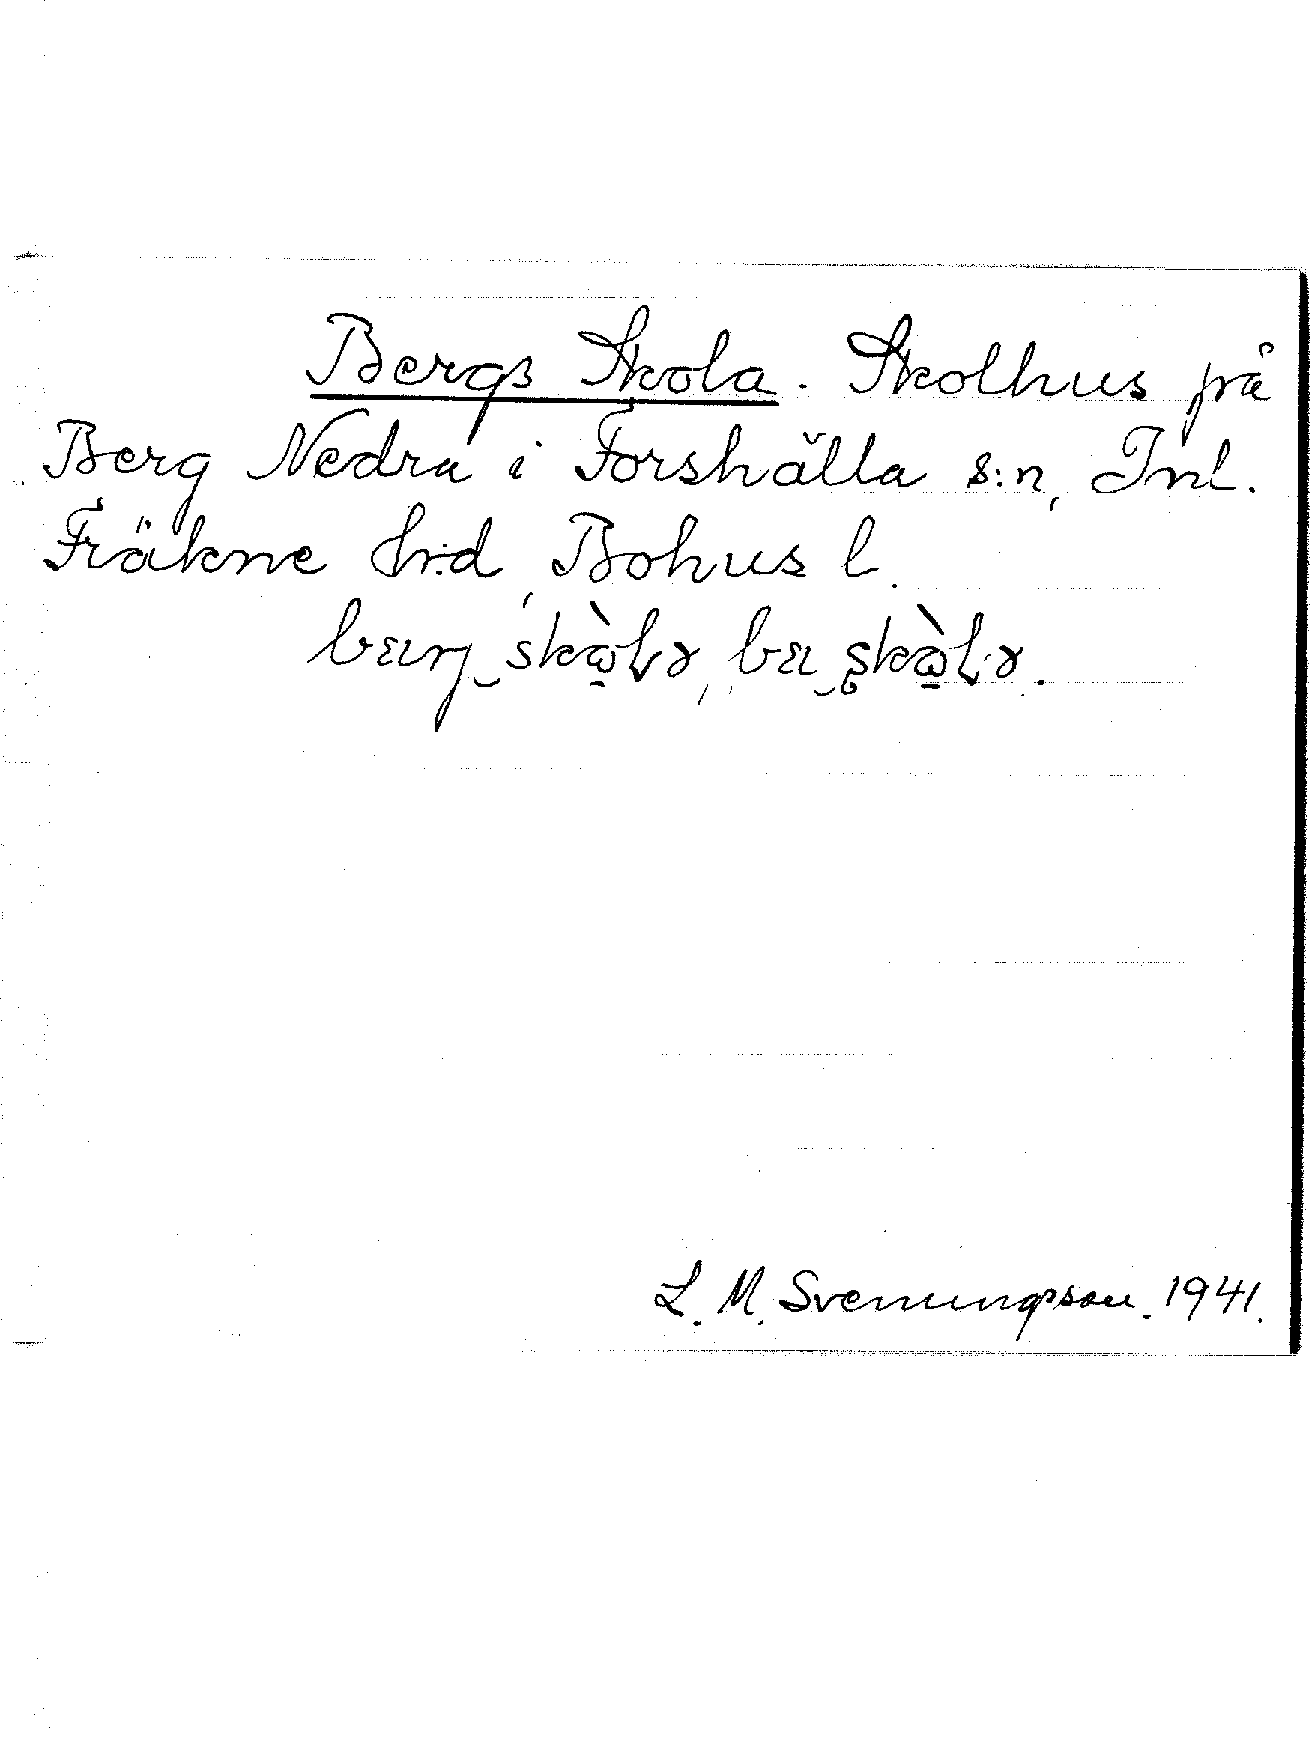 Bergs Skola. Skolhus på
Berg Nedra i Forshälla s:n, Inl.
Fräkne hrd, Bohus l.
L. M. Svenungsson. 1941.